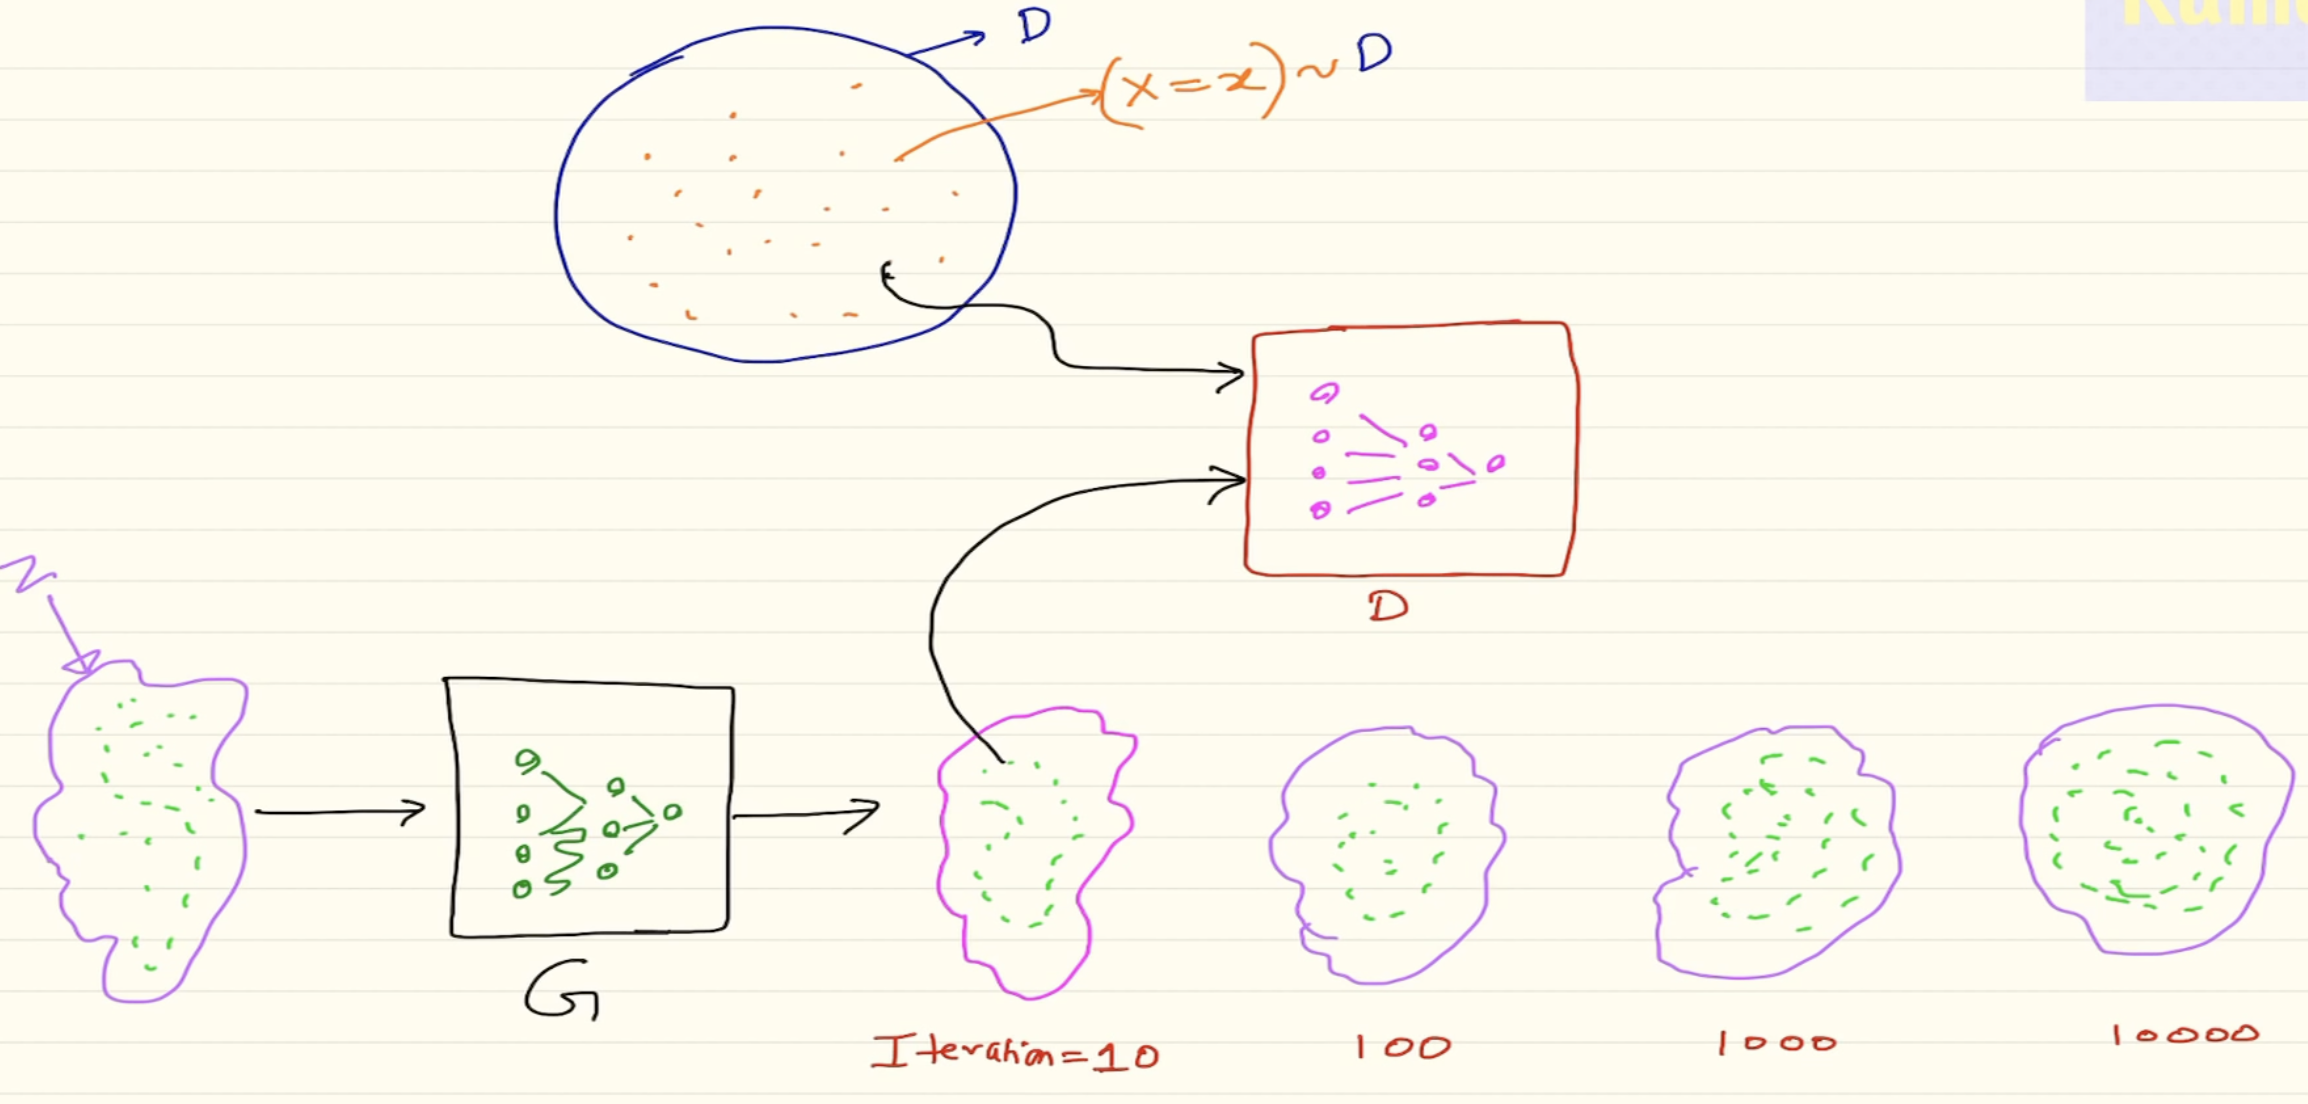 D
(X = x) ~ D
D
N
G
Iteration = 10
100
1000
10000